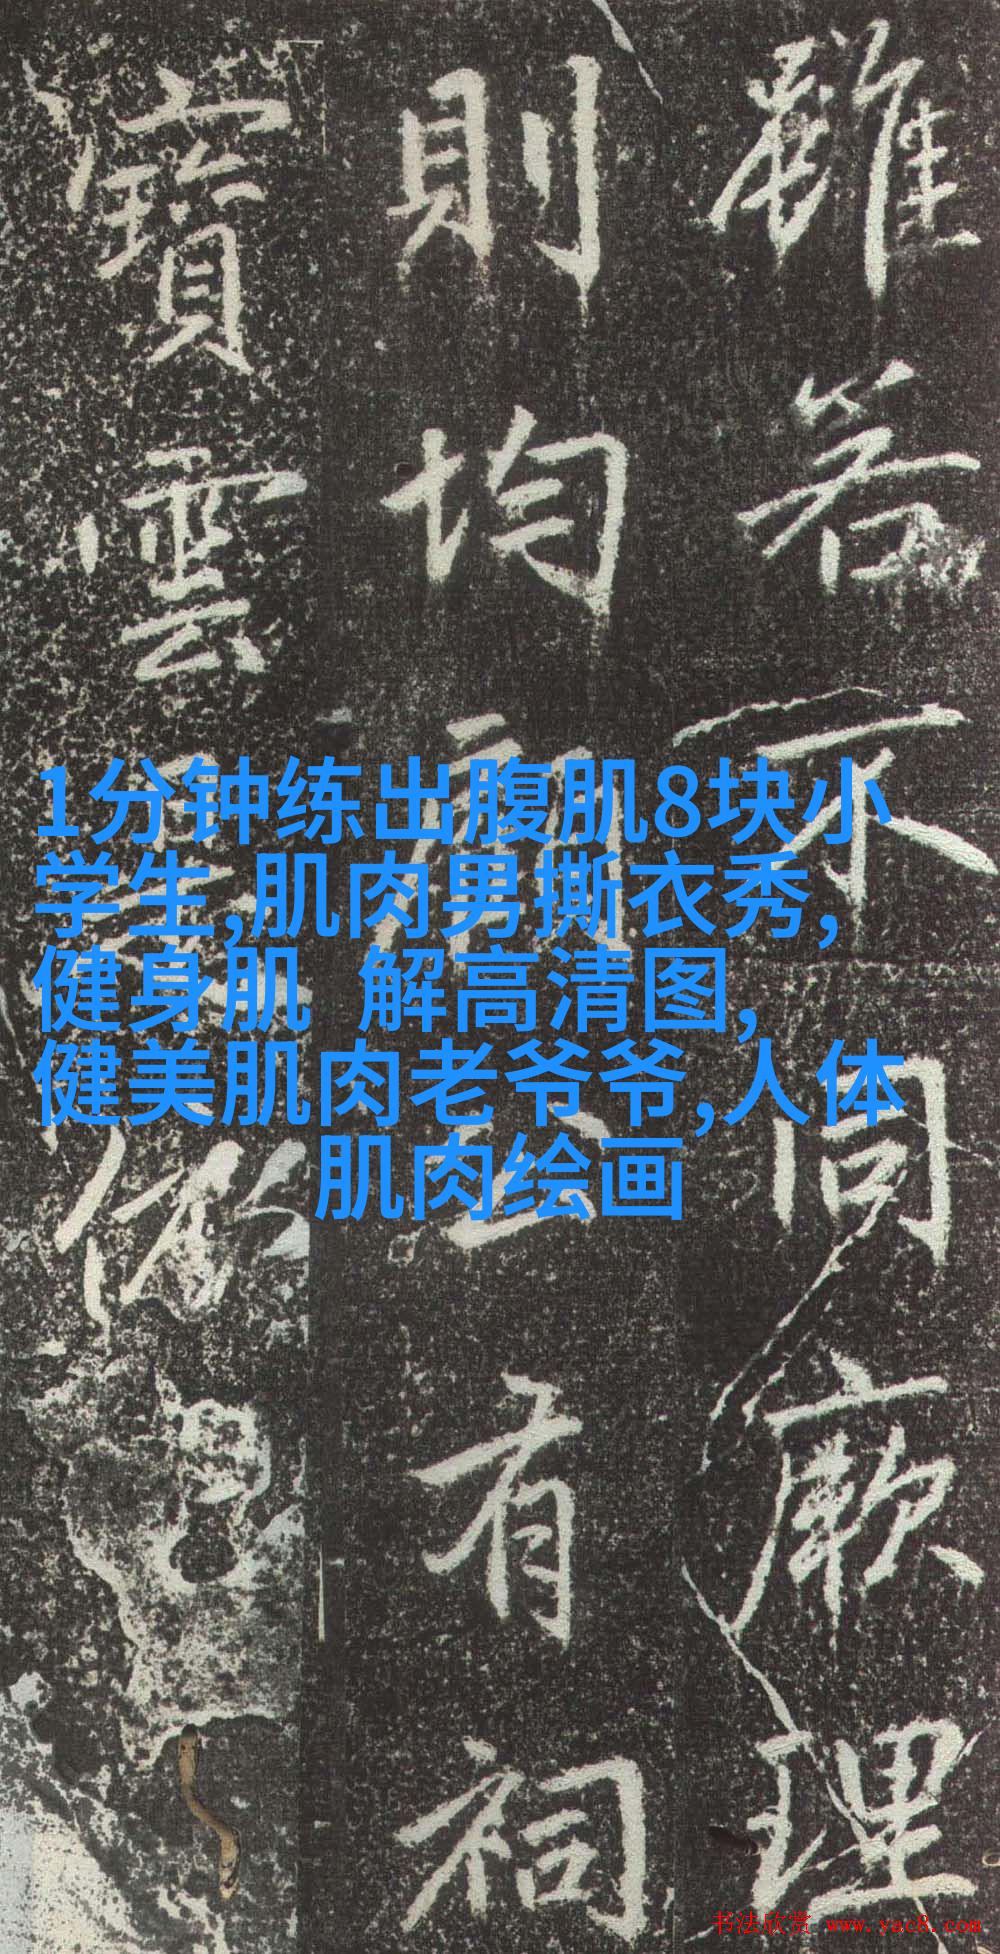 雖若不同厥理
則均有祠
寶雲
1分钟练出腹肌8块小
学生,肌肉男撕衣秀,
健身肌 解高清图,
健美肌肉老爷爷,人体
肌肉绘画
书法欣赏 www.yac8.com